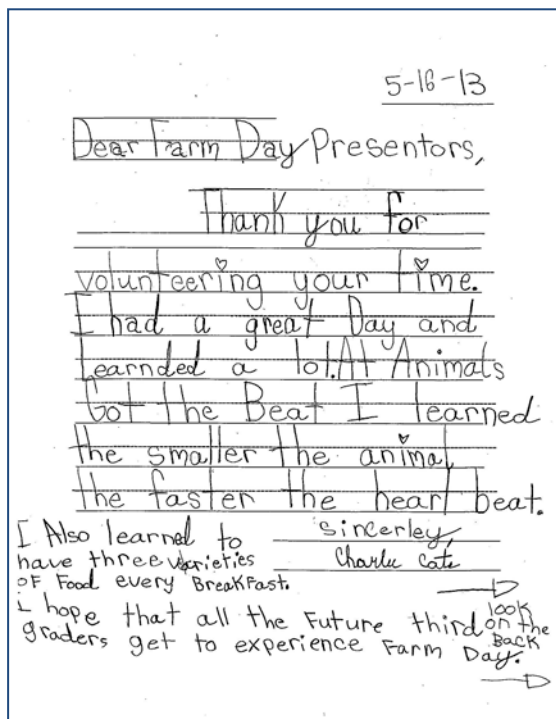 5-16-13
Dear Farm Day Presentors,
Thank you for
volunteering your time.
I had a great Day and
Learnded a lot. At Animals
Got the Beat I learned
the smaller the animal,
the faster the heart beat.
Sincerley,
Charlie Cate
I Also learned to
have three varieties
of Food every BreakFast.
I hope that all the Future third
graders get to experience Farm Day.
look
on the
BACK